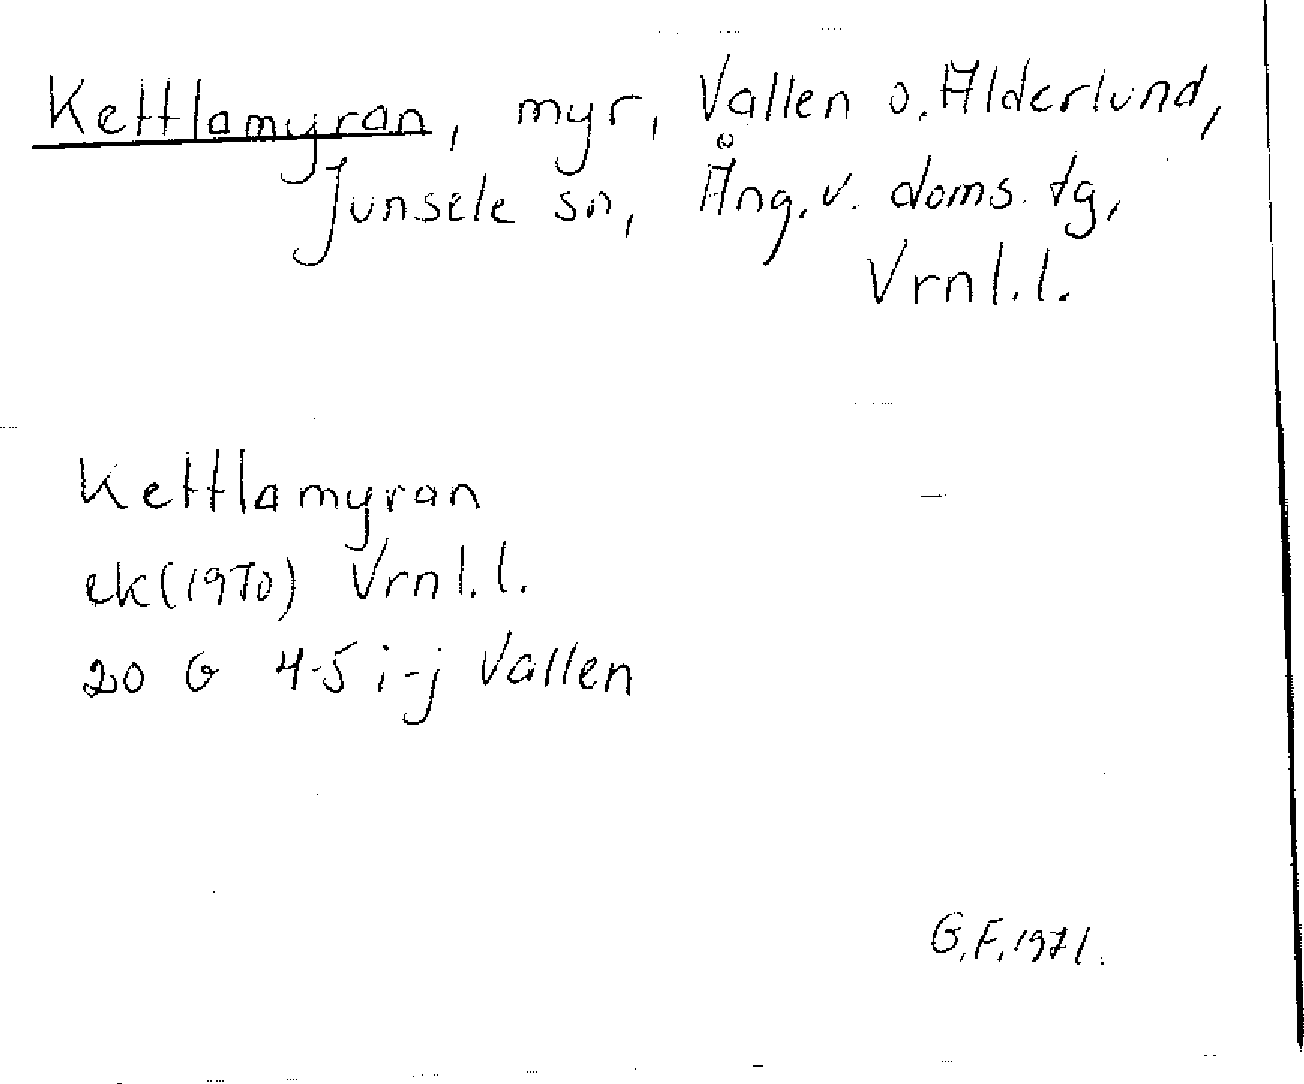 Kettlamyran, myr, Vallen o. Alderlund,
Junsele sn, Ång. v. doms. tg,
Vrnl. l.
Kettlamyran
ek (1970) Vrnl. l.
20 G 4-5 i-j Vallen
G. F. 1971.